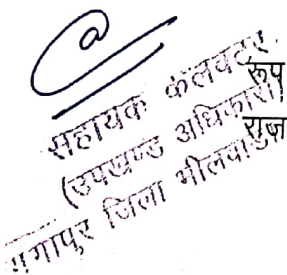 सहायक कलक्टर
(उपखण्ड अधिकारी)
गंगापुर जिला भीलवाड़ा
रूप
राज